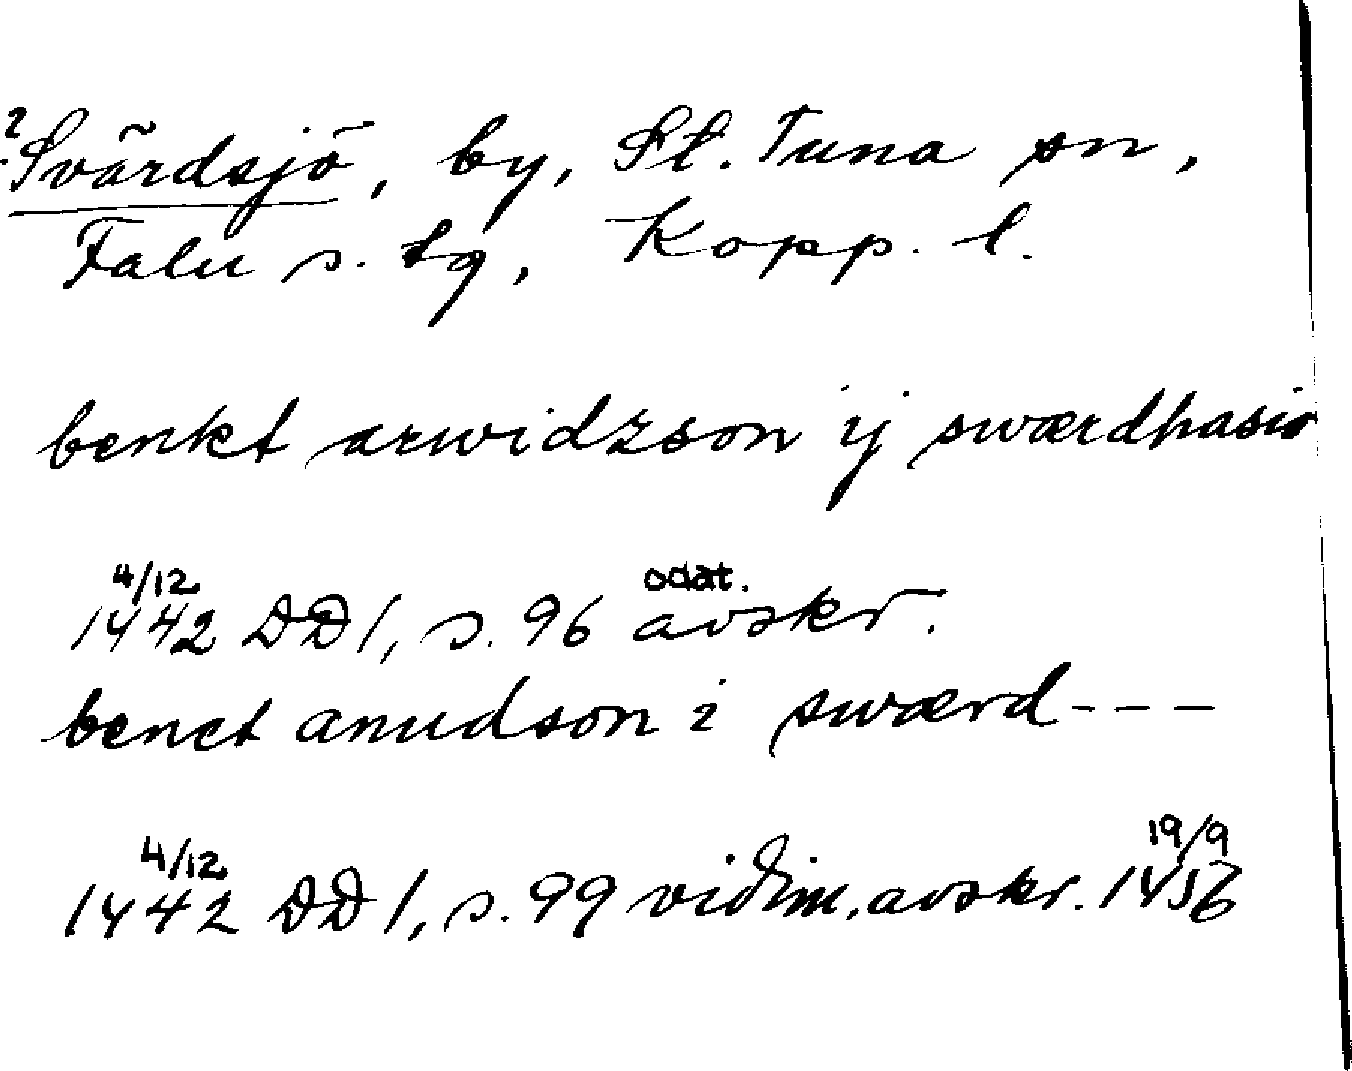 ? Svärdsjö, by, St. Tuna sn,
Falu s. tg, Kopp. l.
benkt arwidzson ij swærdhasio
4/12 odat.
1442 DD 1, s. 96 avskr.
benct anudson i swærd---
4/12 19/9
1442 DD 1, s. 99 vidim. avskr. 1456